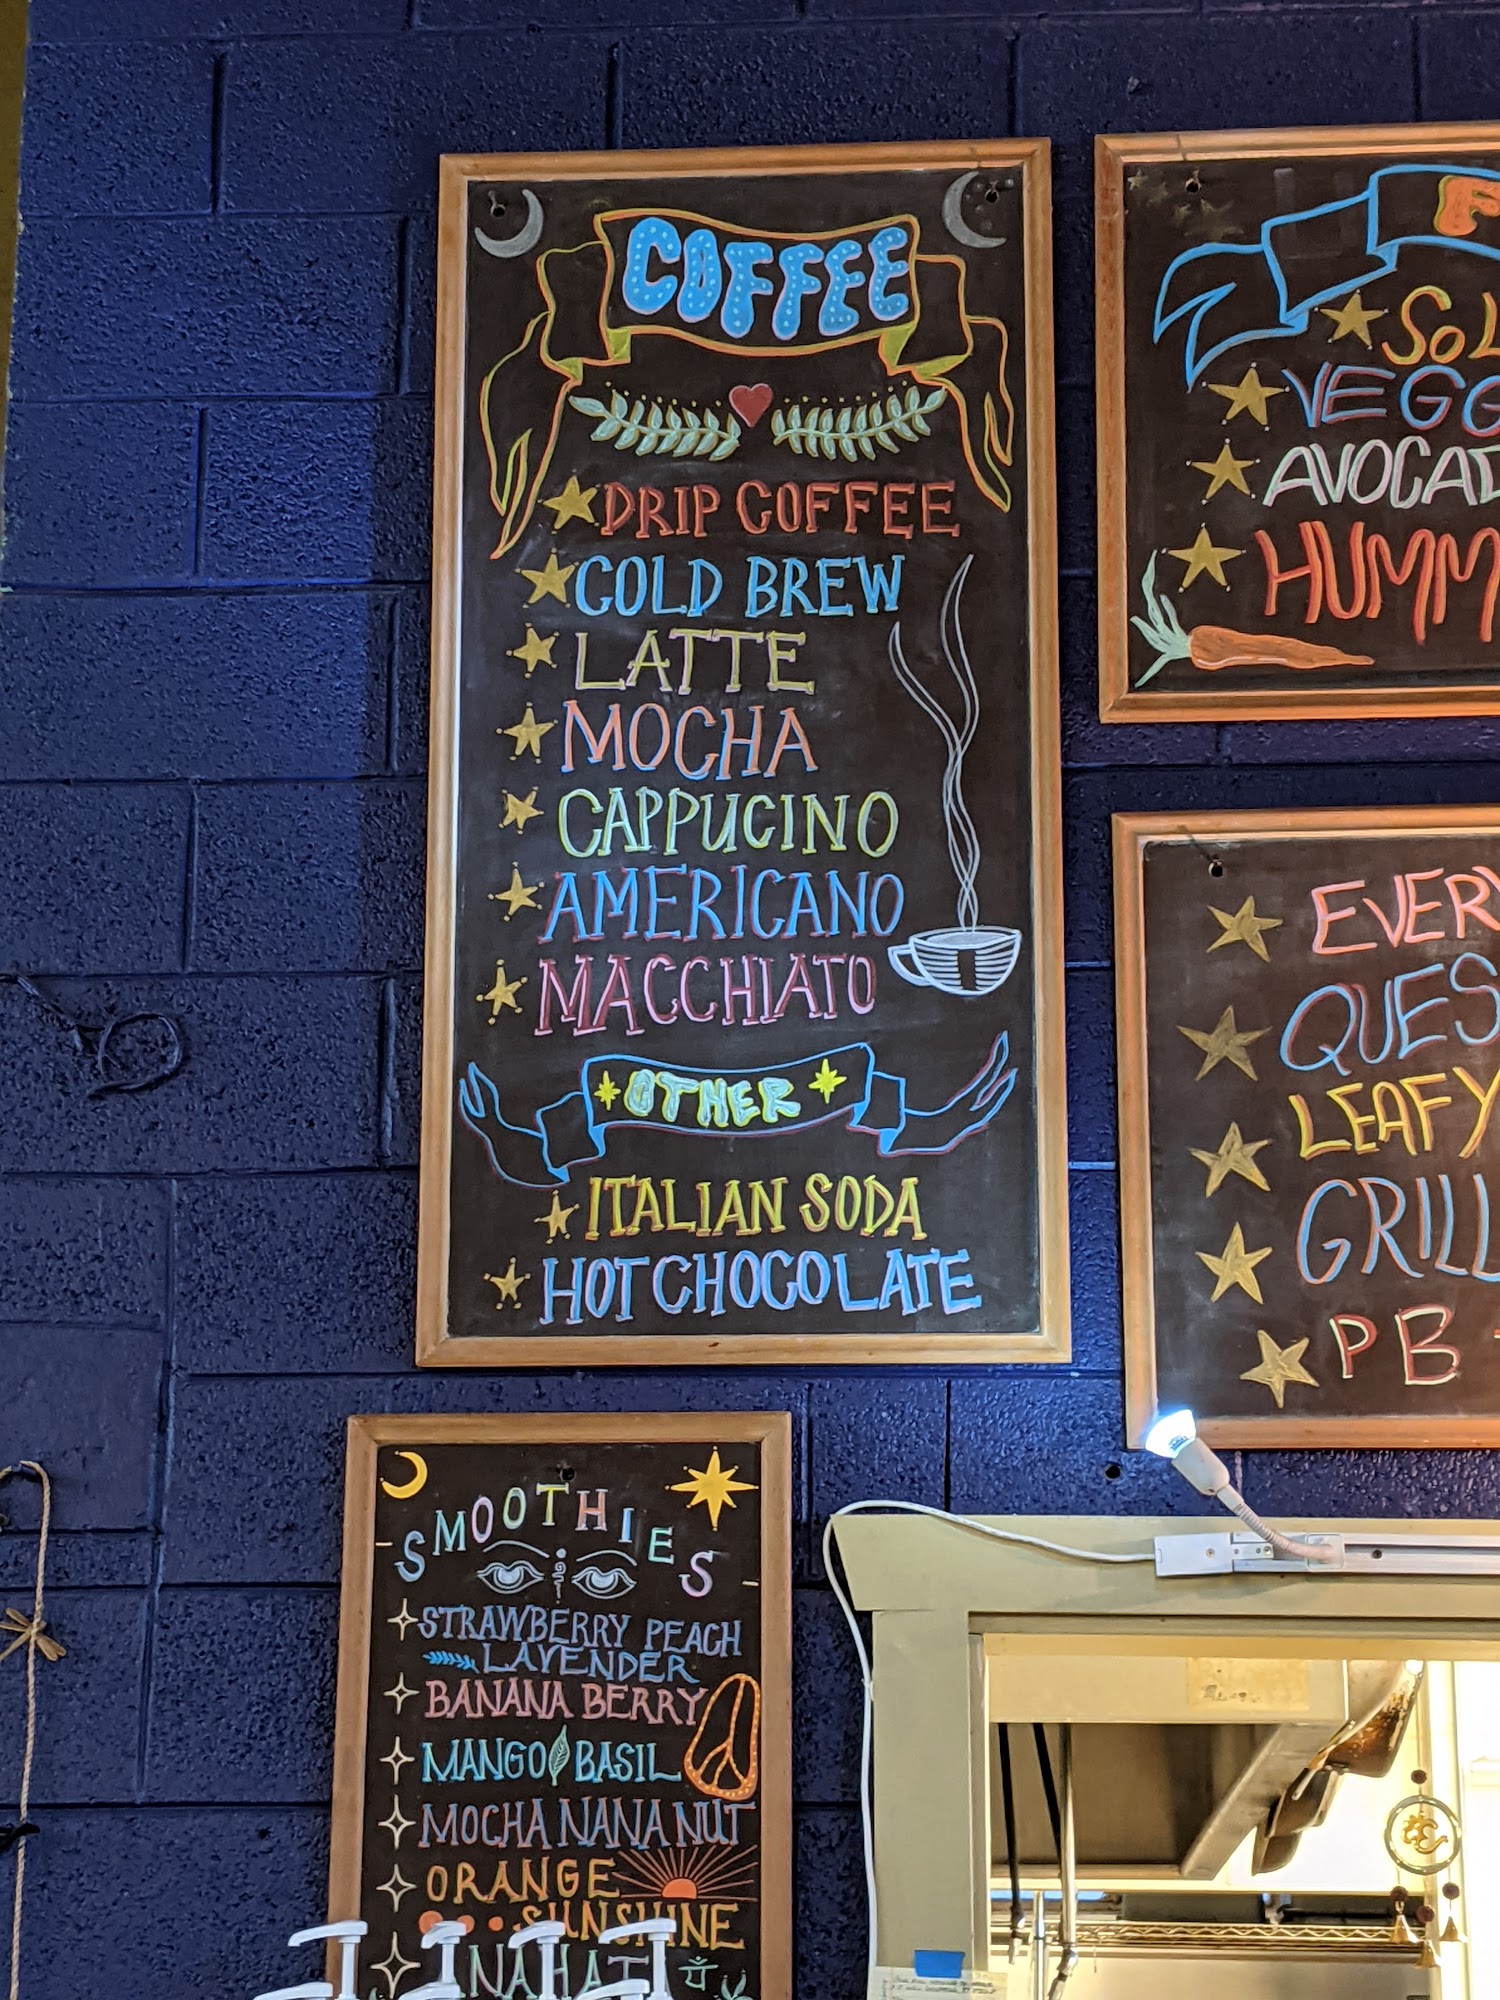 COFFEE
DRIP COFFEE
COLD BREW
LATTE
MOCHA
CAPPUCINO
AMERICANO
MACCHIATO
OTHER
ITALIAN SODA
HOT CHOCOLATE
VEGG
AVOCAD
HUMM
EVERY
QUES
LEAFY
GRILL
PB
SMOOTHIES
STRAWBERRY PEACH
LAVENDER
BANANA BERRY
MANGO BASIL
MOCHA NANA NUT
ORANGE
SUNSHINE